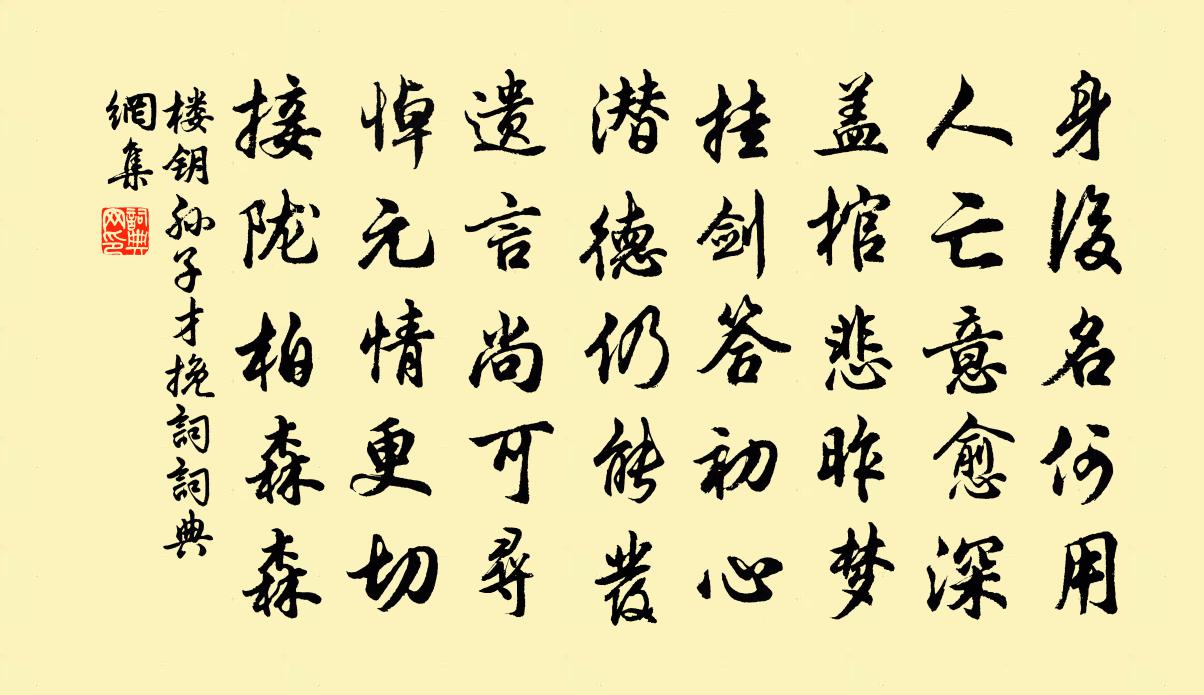 身後名何用
人亡意愈深
盖棺悲昨梦
挂剑答初心
潜德仍能發
遗言尚可尋
悼亢情更切
接陇柏森森
楼钥孙子才挽詞詞典
網集
詞典网印